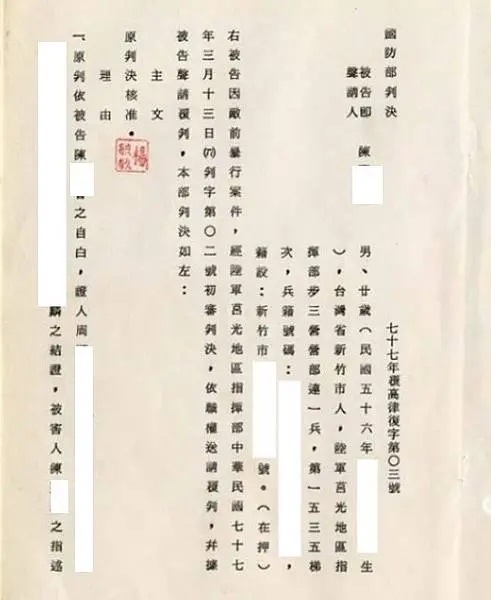 國防部判決
七十七年覆高律復字第〇三號
被告即
聲請人
陳
男、廿歲(民國五十六年 生
),台灣省新竹市人,陸軍莒光地區指
揮部步三營營部連一兵,第一五三五梯
次,兵籍號碼: ,
籍設:新竹市 號。(在押)
右被告因敵前暴行案件,經陸軍莒光地區指揮部中華民國七十七
年三月十三日(77)判字第〇二號初審判決,依職權送請覆判,并據
被告聲請覆判,本部判決如左:
主文
原判決核准。
理由
一、原判依被告陳 之自白,證人周
麟之結證,被害人陳 之指述